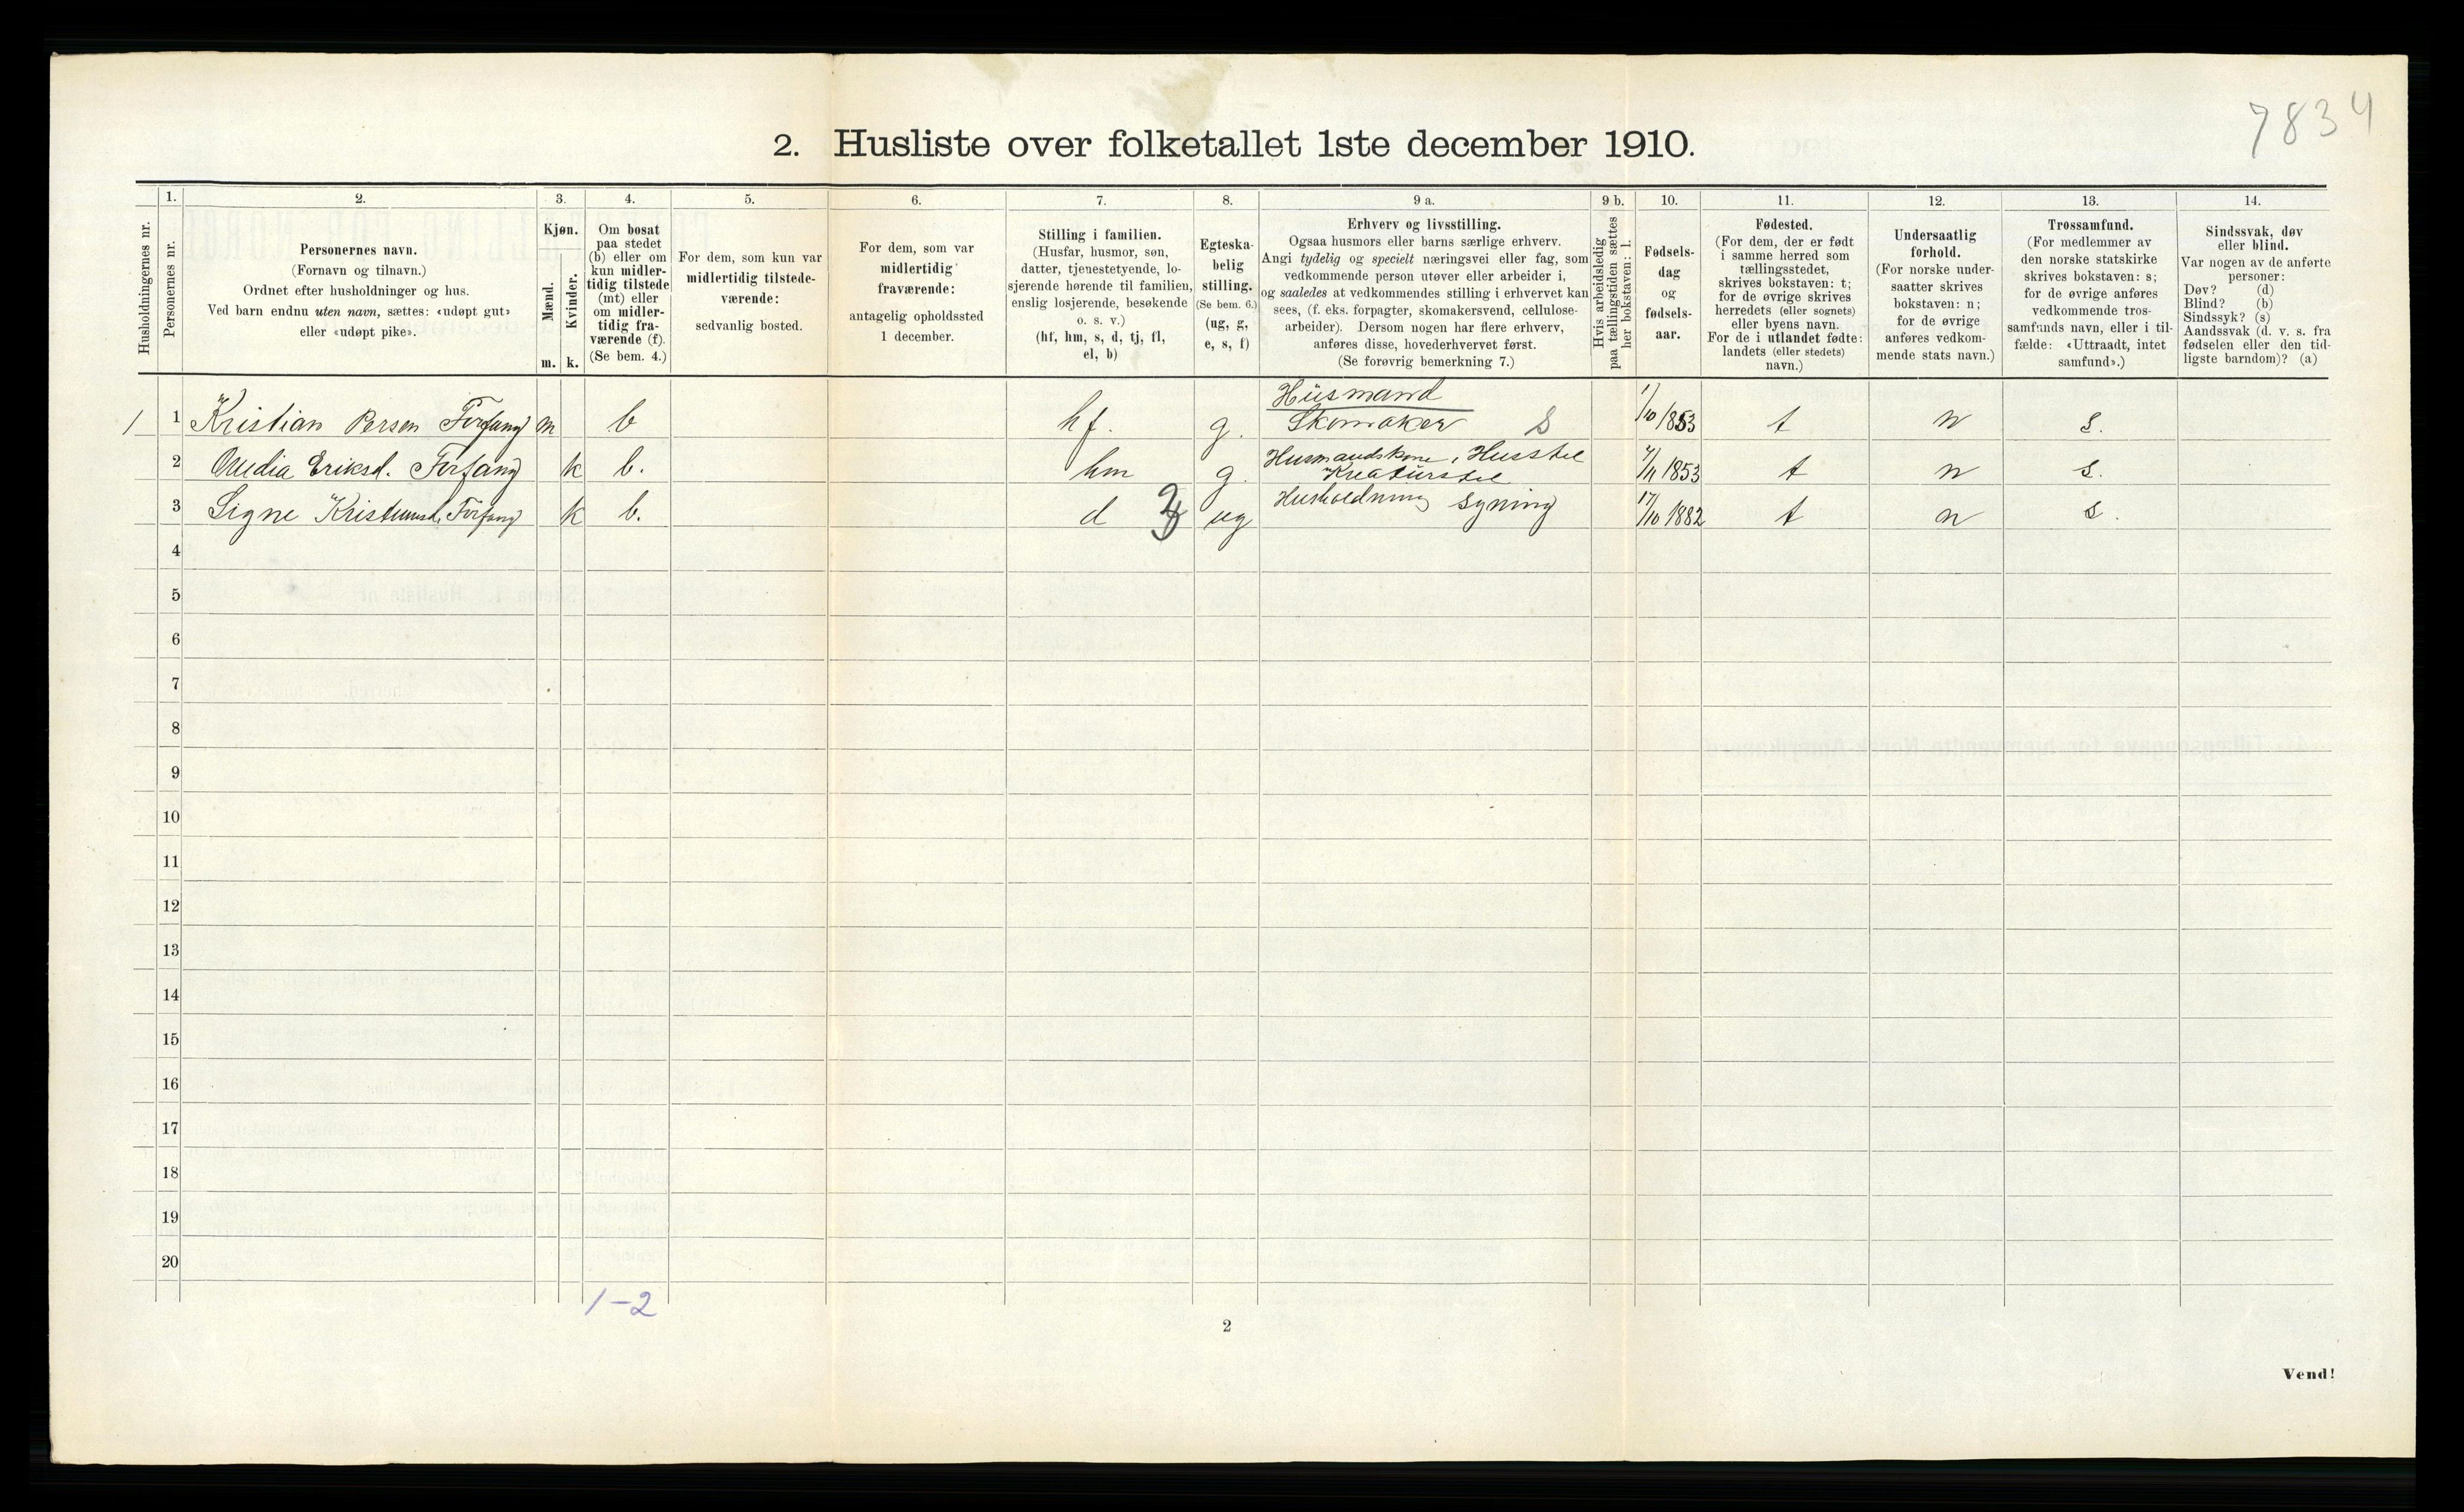 7834
2. Husliste over folketallet 1ste december 1910.
Husholdningernes nr.
1.
Personernes nr.
2.
Personernes navn.
(Fornavn og tilnavn.)
Ordnet efter husholdninger og hus.
Ved barn endnu uten navn, sættes: «udøpt gut»
eller «udøpt pike».
3.
Kjøn.
Mænd.
m.
Kvinder.
k.
4.
Om bosat
paa stedet
(b) eller om
kun midler-
tidig tilstede
(mt) eller
om midler-
tidig fra-
værende (f).
(Se bem. 4.)
5.
For dem, som kun var
midlertidig tilstede-
værende:
sedvanlig bosted.
6.
For dem, som var
midlertidig
fraværende:
antagelig opholdssted
1 december.
7.
Stilling i familien.
(Husfar, husmor, søn,
datter, tjenestetyende, lo-
sjerende hørende til familien,
enslig losjerende, besøkende
o. s. v.)
(hf, hm, s, d, tj, fl,
el, b)
8.
Egteska-
belig
stilling.
(Se bem. 6.)
(ug, g,
e, s, f)
9 a.
Erhverv og livsstilling.
Ogsaa husmors eller barns særlige erhverv.
Angi tydelig og specielt næringsvei eller fag, som
vedkommende person utøver eller arbeider i,
og saaledes at vedkommendes stilling i erhvervet kan
sees, (f. eks. forpagter, skomakersvend, cellulose-
arbeider). Dersom nogen har flere erhverv,
anføres disse, hovederhvervet først.
(Se forøvrig bemerkning 7.)
9 b.
Hvis arbeidsledig
paa tællingstiden sættes
her bokstaven: l.
10.
Fødsels-
dag
og
fødsels-
aar.
11.
Fødested.
(For dem, der er født
i samme herred som
tællingsstedet,
skrives bokstaven: t;
for de øvrige skrives
herredets (eller sognets)
eller byens navn.
For de i utlandet fødte:
landets (eller stedets)
navn.)
12.
Undersaatlig
forhold.
(For norske under-
saatter skrives
bokstaven: n;
for de øvrige
anføres vedkom-
mende stats navn.)
13.
Trossamfund.
(For medlemmer av
den norske statskirke
skrives bokstaven: s;
for de øvrige anføres
vedkommende tros-
samfunds navn, eller i til-
fælde: «Uttraadt, intet
samfund».)
14.
Sindssvak, døv
eller blind.
Var nogen av de anførte
personer:
Døv? (d)
Blind? (b)
Sindssyk? (s)
Aandssvak (d. v. s. fra
fødselen eller den tid-
ligste barndom)? (a)
Husmand
1 1 Kristian Persen Forfang m b hf. g. Skomaker S 1/10 1853 t n s.
2 Audia Eriksd. Forfang k b. hm g. Husmandskone, Husstel Kreaturstel 4/11 1853 t n s.
3 Signe Kristiansd. Forfang k b. d 3 ug Husholdning Syning 17/10 1882 t n s.
4
5
6
7
8
9
10
11
12
13
14
15
16
17
18
19
20
1-2
2
Vend!